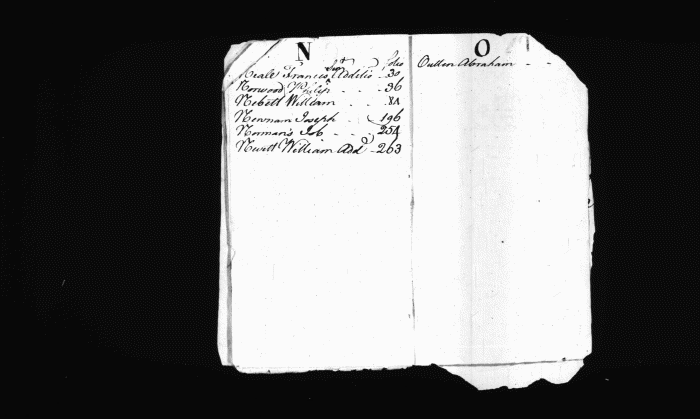 N
folio
Neale Francis Additio 30
Norwood Philip - - - 36
Nebett William - - - 84
Newnam Joseph - - 196
Norman's Job - - - 254
Nevett William Add - 263
O
Outten Abraham - -